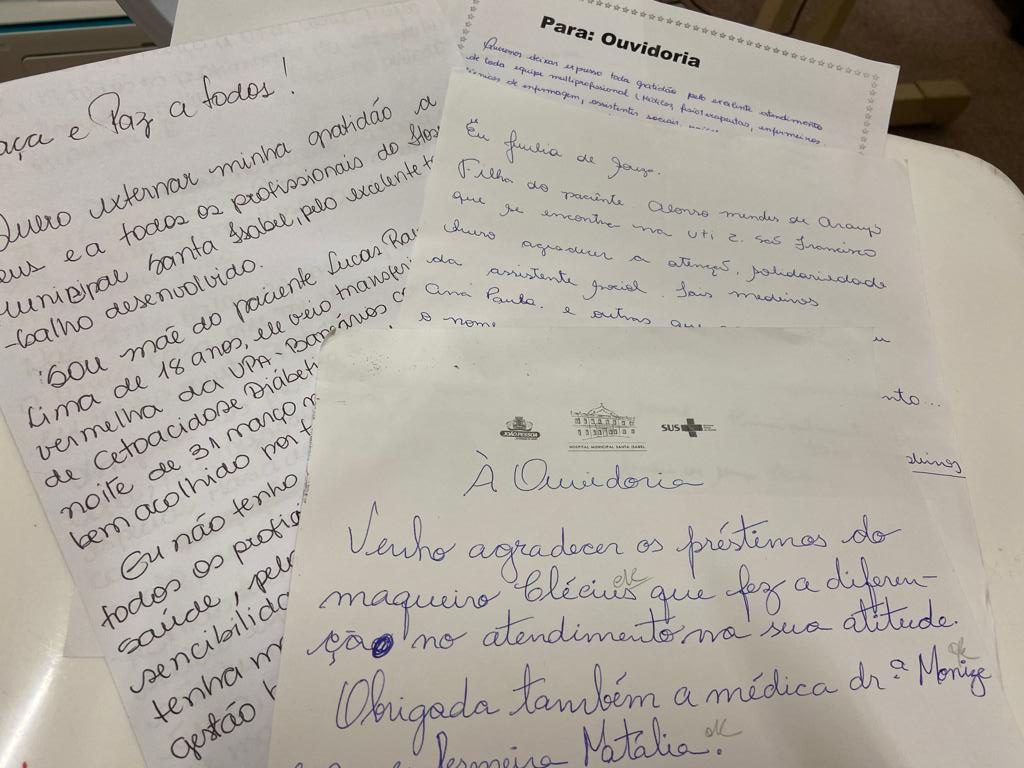 aça e Paz a todos!
Quero externar minha gratidão a
eus e a todos os profissionais do Hos
Municipal Santa Isabel, pelo excelente t
-balho desenvolvido.
Sou mãe do paciente Lucas
Lima de 18 anos, ele veio transferi
vermelha da UPA-Bancários c
de Cetoacidose Diábeti
noite de 31 março
bem acolhido por
Eu não tenho
todos os profis
saúde, pel
sencibilida
tenha m
gestão
Para: Ouvidoria
Queremos deixar expresso toda gratidão pelo excelente atendimento
de toda equipe multiprofissional (Médicos, fisioterapeutas, enfermeiros,
técnicos de enfermagem, assistentes sociais
Eu de
Filha do paciente Alonso mendes de Araujo
que se encontra na uti 2. São Francisco
Quero agradecer a atenção, solidariedade
da assistente social.
Ana Paula. e outras que
o nome
nto...
JOÃO PESSOA
HOSPITAL MUNICIPAL SANTA ISABEL
SUS
À Ouvidoria
Venho agradecer os préstimos do
maqueiro Clécius que fez a diferen-
ça no atendimento na sua atitude.
ok
Obrigada também a médica dr.ª Monize
ok
Natália.
ok